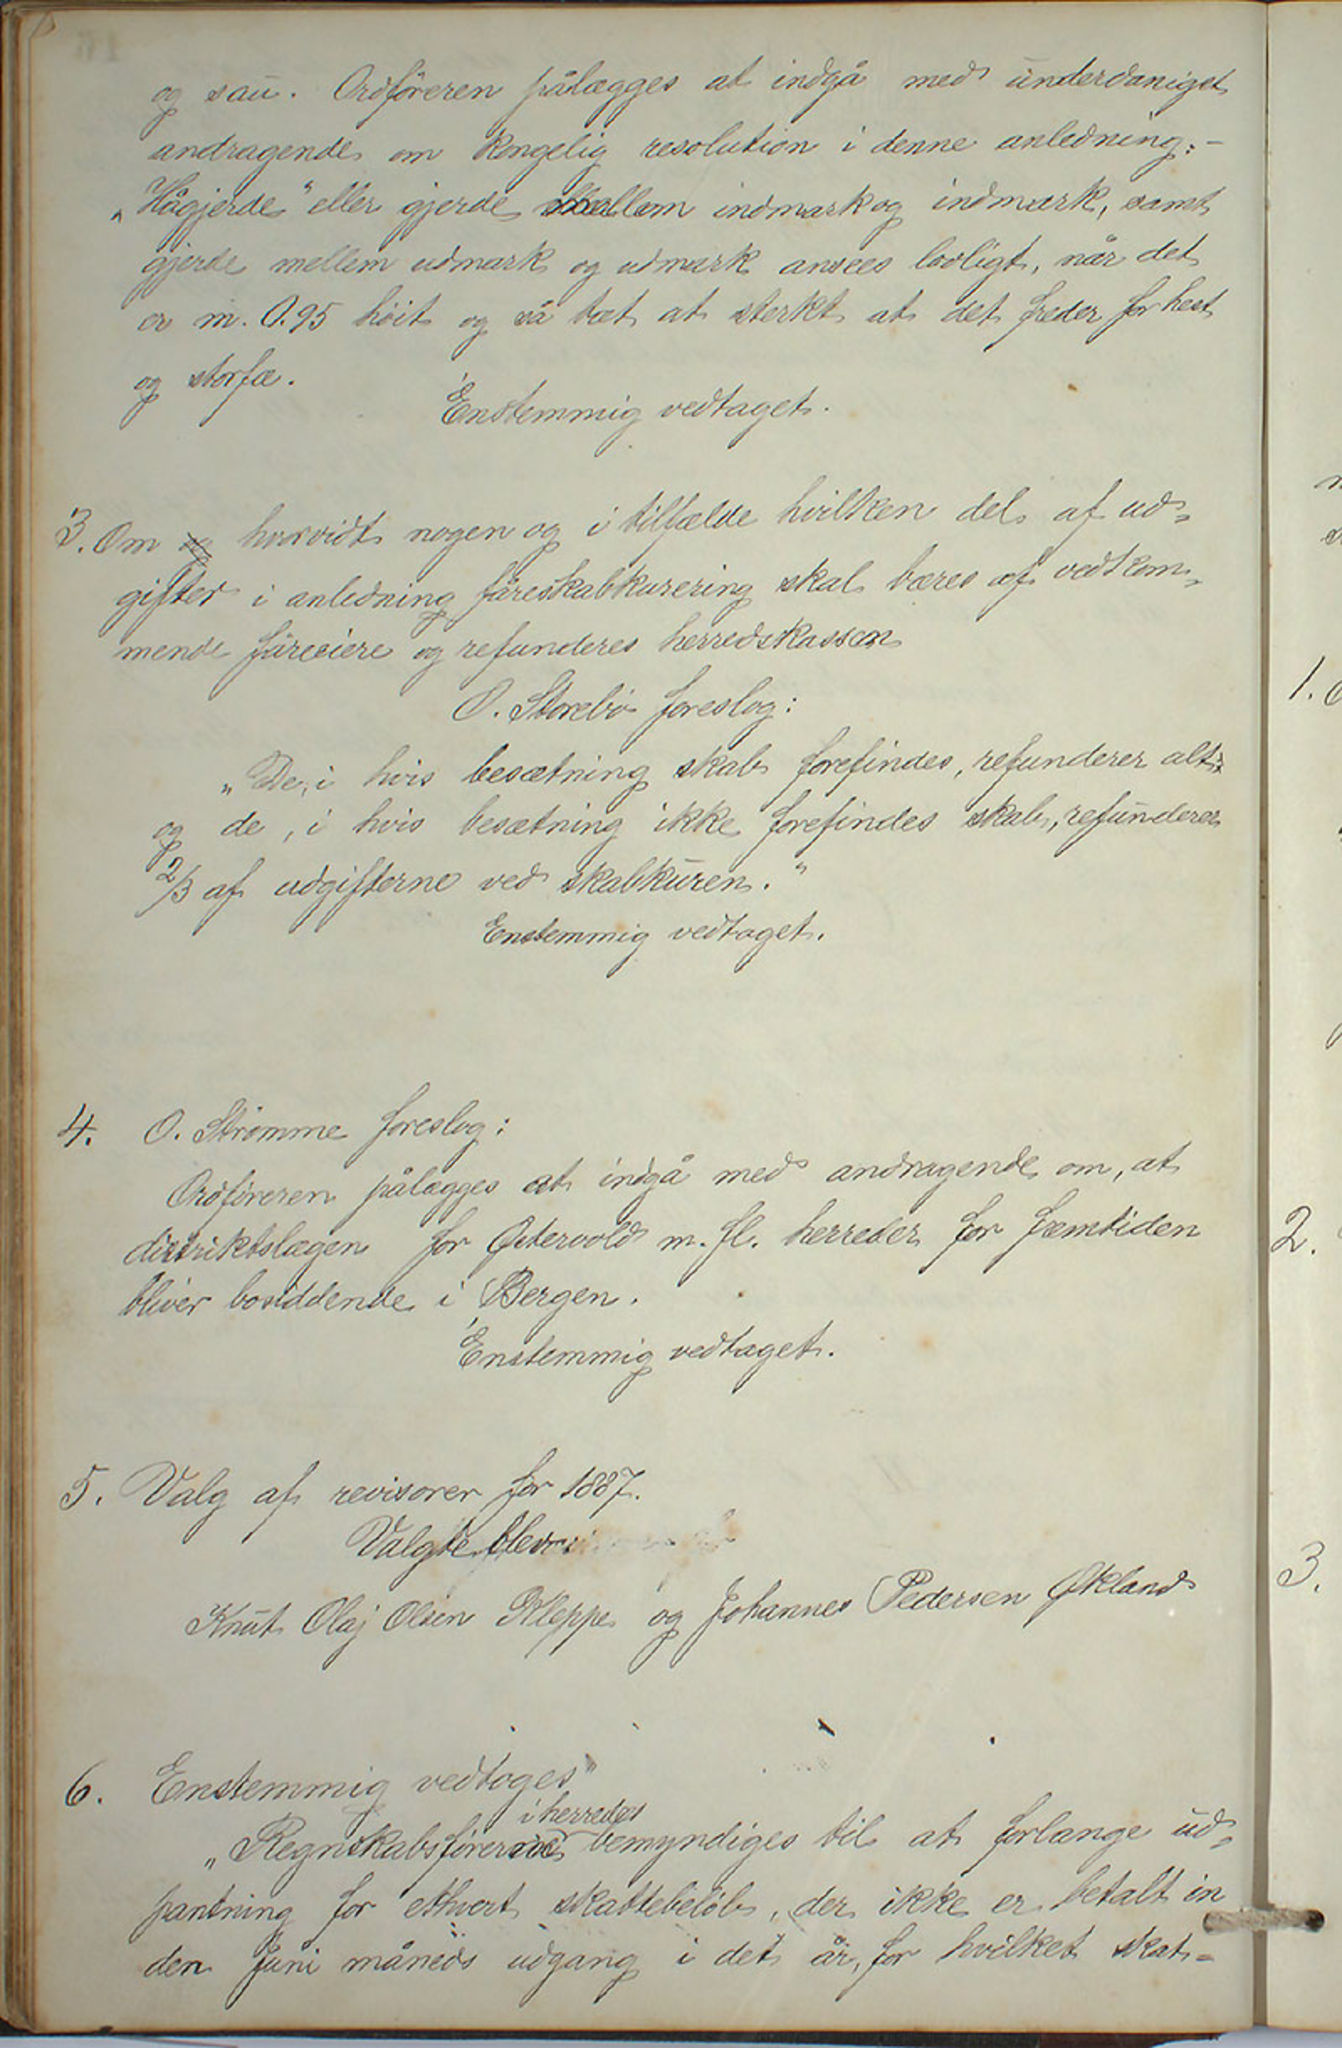 og sau. Ordføreren pålægges at indgå med underdanigst
andragende om kongelig resolution i denne anledning: -
„Hågjerde" eller gjerde mellem indmark og indmark, samt
gjerde mellem udmark og udmark ansees lovligt, når det
er m. 0.95 höit og så tæt at sterkt at det freder for hest
og storfæ.
Enstemmig vedtaget.
3. Om hvorvidt nogen og i tilfælde hvilken del af ud-
gifter i anledning fåreskabkurering skal bæres af vedkom-
mende fåreeiere og refunderes herredskassen
O. Storebø foreslog:
„De, i hvis besætning skab forefindes, refunderer alt;
og de, i hvis besætning ikke forefindes skab, refunderer
2/3 af udgifterne ved skabkuren."
Enstemmig vedtaget.
4. O. Strømme foreslog:
Ordføreren pålægges at indgå med andragende om, at
distriktslægen for Østervold m. fl. herreder for fremtiden
bliver bosiddende i Bergen.
Enstemmig vedtaget.
5. Valg af revisorer for 1887.
Valgte blev:
Knut Olaj Olsen Kleppe og Johannes Pedersen Økland
6. Enstemmig vedtoges"
i herredet
„Regnskabsførerne bemyndiges til at forlange ud-
pantning for ethvert skattebeløb, der ikke er betalt in
den Juni måneds udgang i det år, for hvilket skat-
1.
2.
3.